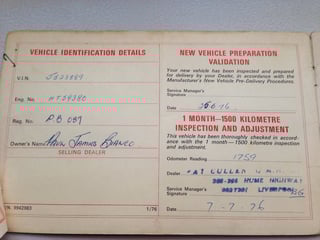 VEHICLE IDENTIFICATION DETAILS
V.I.N. J823989
Eng. No. HT38380
Reg. No. PB 089
Owner's Name Paul James Bianco
SELLING DEALER
P/N. 9942983 1/76
NEW VEHICLE PREPARATION
VALIDATION
Your new vehicle has been inspected and prepared
for delivery by your Dealer, in accordance with the
Manufacturer's New Vehicle Pre-Delivery Procedures.
Service Manager's
Signature
Date 25 6 76
1 MONTH—1500 KILOMETRE
INSPECTION AND ADJUSTMENT
This vehicle has been thoroughly checked in accord-
ance with the 1 month — 1500 kilometre inspection
and adjustment.
Odometer Reading 1759
Dealer PAT CULLEN
HUME HIGHWAY
Service Manager's LIVERPOOL
Signature
Date 7-7-76